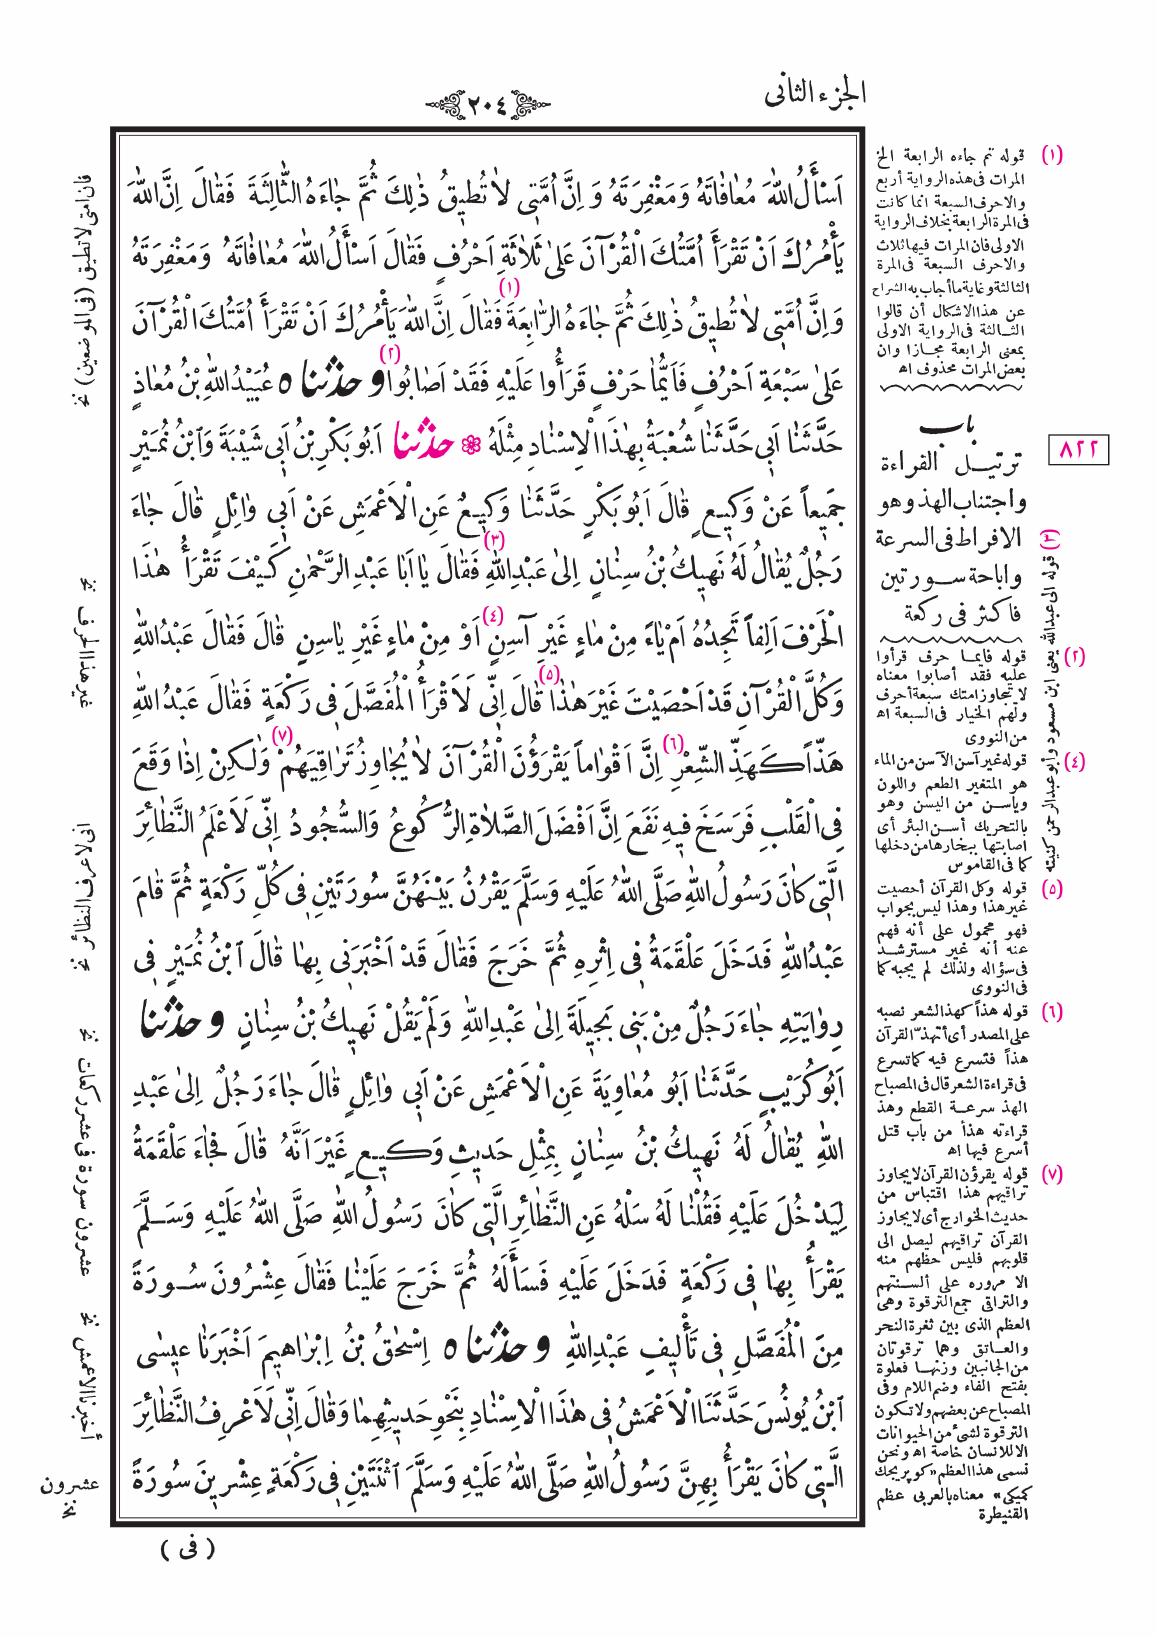 الجزء الثانى
٢٠٤
اَسْأَلُ اللّٰهَ مُعَافَاتَهُ وَمَغْفِرَتَهُ وَاِنَّ اُمَّتِى لَا تُطِيقُ ذٰلِكَ ثُمَّ جَاءَهُ الثَّالِثَةَ فَقَالَ اِنَّ اللّٰهَ
يَأْمُرُكَ اَنْ تَقْرَأَ اُمَّتُكَ الْقُرْآنَ عَلٰى ثَلَاثَةِ اَحْرُفٍ فَقَالَ اَسْأَلُ اللّٰهَ مُعَافَاتَهُ وَمَغْفِرَتَهُ
وَاِنَّ اُمَّتِى لَا تُطِيقُ ذٰلِكَ ثُمَّ جَاءَهُ الرَّابِعَةَ (١) فَقَالَ اِنَّ اللّٰهَ يَأْمُرُكَ اَنْ تَقْرَأَ اُمَّتُكَ الْقُرْآنَ
عَلٰى سَبْعَةِ اَحْرُفٍ فَاَيُّمَا حَرْفٍ قَرَأُوا عَلَيْهِ فَقَدْ اَصَابُوا (٢) وحدثنا ٥ عُبَيْدُ اللّٰهِ بْنُ مُعَاذٍ
حَدَّثَنَا اَبِى حَدَّثَنَا شُعْبَةُ بِهٰذَا الْاِسْنَادِ مِثْلَهُ ❁ حدثنا اَبُو بَكْرِ بْنُ اَبِى شَيْبَةَ وَابْنُ نُمَيْرٍ
جَمِيعاً عَنْ وَكِيعٍ قَالَ اَبُو بَكْرٍ حَدَّثَنَا وَكِيعٌ عَنِ الْاَعْمَشِ عَنْ اَبِى وَائِلٍ قَالَ جَاءَ
رَجُلٌ يُقَالُ لَهُ نَهِيكُ بْنُ سِنَانٍ اِلٰى عَبْدِ اللّٰهِ (٣) فَقَالَ يَا اَبَا عَبْدِ الرَّحْمٰنِ كَيْفَ تَقْرَأُ هٰذَا
الْحَرْفَ اَلِفاً تَجِدُهُ اَمْ يَاءً مِنْ مَاءٍ غَيْرِ آسِنٍ (٤) اَوْ مِنْ مَاءٍ غَيْرِ يَاسِنٍ قَالَ فَقَالَ عَبْدُ اللّٰهِ
وَكُلَّ الْقُرْآنِ قَدْ اَحْصَيْتَ غَيْرَ هٰذَا (٥) قَالَ اِنِّى لَاَقْرَأُ الْمُفَصَّلَ فِى رَكْعَةٍ فَقَالَ عَبْدُ اللّٰهِ
هَذّاً كَهَذِّ الشِّعْرِ (٦) اِنَّ اَقْوَاماً يَقْرَؤُنَ الْقُرْآنَ لَا يُجَاوِزُ تَرَاقِيَهُمْ (٧) وَلٰكِنْ اِذَا وَقَعَ
فِى الْقَلْبِ فَرَسَخَ فِيهِ نَفَعَ اِنَّ اَفْضَلَ الصَّلَاةِ الرُّكُوعُ وَالسُّجُودُ اِنِّى لَاَعْلَمُ النَّظَائِرَ
الَّتِى كَانَ رَسُولُ اللّٰهِ صَلَّى اللّٰهُ عَلَيْهِ وَسَلَّمَ يَقْرُنُ بَيْنَهُنَّ سُورَتَيْنِ فِى كُلِّ رَكْعَةٍ ثُمَّ قَامَ
عَبْدُ اللّٰهِ فَدَخَلَ عَلْقَمَةُ فِى اِثْرِهِ ثُمَّ خَرَجَ فَقَالَ قَدْ اَخْبَرَنِى بِهَا قَالَ ابْنُ نُمَيْرٍ فِى
رِوَايَتِهِ جَاءَ رَجُلٌ مِنْ بَنِى بَجِيلَةَ اِلٰى عَبْدِ اللّٰهِ وَلَمْ يَقُلْ نَهِيكُ بْنُ سِنَانٍ وحدثنا
اَبُو كُرَيْبٍ حَدَّثَنَا اَبُو مُعَاوِيَةَ عَنِ الْاَعْمَشِ عَنْ اَبِى وَائِلٍ قَالَ جَاءَ رَجُلٌ اِلٰى عَبْدِ
اللّٰهِ يُقَالُ لَهُ نَهِيكُ بْنُ سِنَانٍ بِمِثْلِ حَدِيثِ وَكِيعٍ غَيْرَ اَنَّهُ قَالَ فَجَاءَ عَلْقَمَةُ
لِيَدْخُلَ عَلَيْهِ فَقُلْنَا لَهُ سَلْهُ عَنِ النَّظَائِرِ الَّتِى كَانَ رَسُولُ اللّٰهِ صَلَّى اللّٰهُ عَلَيْهِ وَسَلَّمَ
يَقْرَأُ بِهَا فِى رَكْعَةٍ فَدَخَلَ عَلَيْهِ فَسَأَلَهُ ثُمَّ خَرَجَ عَلَيْنَا فَقَالَ عِشْرُونَ سُورَةً
مِنَ الْمُفَصَّلِ فِى تَأْلِيفِ عَبْدِ اللّٰهِ وحدثنا ٥ اِسْحٰقُ بْنُ اِبْرَاهِيمَ اَخْبَرَنَا عِيسَى
ابْنُ يُونُسَ حَدَّثَنَا الْاَعْمَشُ فِى هٰذَا الْاِسْنَادِ بِنَحْوِ حَدِيثِهِمَا وَقَالَ اِنِّى لَاَعْرِفُ النَّظَائِرَ
الَّتِى كَانَ يَقْرَأُ بِهِنَّ رَسُولُ اللّٰهِ صَلَّى اللّٰهُ عَلَيْهِ وَسَلَّمَ اثْنَتَيْنِ فِى رَكْعَةٍ عِشْرِينَ سُورَةً
( فى )
(١) قوله ثم جاءه الرابعة الخ
المرات فى هذه الرواية أربع
والاحرف السبعة انما كانت
فى المرة الرابعة بخلاف الرواية
الاولى فان المرات فيها ثلاث
والاحرف السبعة فى المرة
الثالثة وغاية ما أجاب به الشراح
عن هذا الاشكال أن قالوا
الثالثة فى الرواية الاولى
بمعنى الرابعة مجازا وان
بعض المرات محذوف اه
باب
٨٢٢
ترتيل القراءة
واجتناب الهذ وهو
الافراط فى السرعة
واباحة سورتين
فاكثر فى ركعة
(٢) قوله فايما حرف قرأوا
عليه فقد أصابوا معناه
لا تتجاوز امتك سبعة أحرف
ولهم الخيار فى السبعة اه
من النووى
(٣) قوله الى عبدالله يعنى ابن مسعود وأبو عبدالرحمن كنيته
(٤) قوله غير آسن الآسن من الماء
هو المتغير الطعم واللون
وياسن من اليسن وهو
بالتحريك أسن البئر أى
اصابتها ببخارها من دخلها
كما فى القاموس
(٥) قوله وكل القرآن أحصيت
غير هذا وهذا ليس بجواب
فهو محمول على أنه فهم
عنه أنه غير مسترشد
فى سؤاله ولذلك لم يجبه كما
فى النووى
(٦) قوله هذاً كهذ الشعر نصبه
على المصدر أى أتهذّ القرآن
هذاً فتسرع فيه كما تسرع
فى قراءة الشعر قال فى المصباح
الهذ سرعة القطع وهذ
قراءته هذاً من باب قتل
أسرع فيها اه
(٧) قوله يقرؤن القرآن لا يجاوز
تراقيهم هذا اقتباس من
حديث الخوارج أى لا يجاوز
القرآن تراقيهم ليصل الى
قلوبهم فليس حظهم منه
الا مروره على ألسنتهم
والتراقى جمع الترقوة وهى
العظم الذى بين ثغرة النحر
والعاتق وهما ترقوتان
من الجانبين وزنها فعلوة
بفتح الفاء وضم اللام وفى
المصباح عن بعضهم ولا تكون
الترقوة لشىء من الحيوانات
الا للانسان خاصة اه ونحن
نسمى هذا العظم «كوپريجك
كميكى» معناه بالعربى عظم
القنيطرة
فان امتى لا تطيق (فى الموضعين) نخ
غير هذا الحرف نخ
انى لاعرف النظائر نخ
عشرون سورة فى عشر ركعات نخ
أخبرنا الاعمش نخ
عشرون
نخ